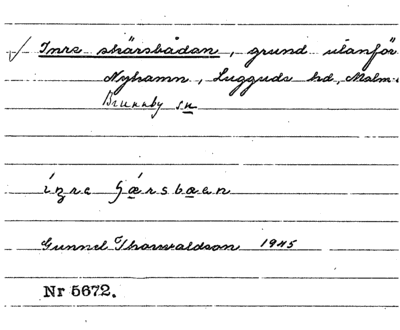 ✓ Inre skärsbådan, grund utanför
Nyhamn, Luggude hd, Malm.
Brunnby sn
Gunnel Thorwaldson 1945
Nr 5672.